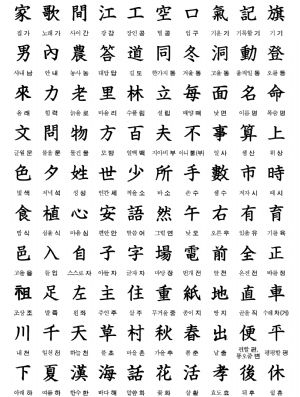 家 歌 間 江 工 空 口 氣 記 旗
집 가 노래 가 사이 간 강 강 장인 공 빌 공 입 구 기운 기 기록할 기 기 기
男 內 農 答 道 同 冬 洞 動 登
사내 남 안 내 농사 농 대답 답 길 도 한가지 동 겨울 동 고을 동 움직일 동 오를 등
來 力 老 里 林 立 每 面 名 命
올 래 힘 력 늙을 로 마을 리 수풀 림 설 립 매양 매 낯 면 이름 명 목숨 명
文 問 物 方 百 夫 不 事 算 上
글월 문 물을 문 물건 물 모 방 일백 백 지아비 부 아니 불(부) 일 사 셈 산 위 상
色 夕 姓 世 少 所 手 數 市 時
빛 색 저녁 석 성 성 인간 세 적을 소 바 소 손 수 셈 수 저자 시 때 시
食 植 心 安 語 然 午 右 有 育
밥 식 심을 식 마음 심 편안 안 말씀 어 그럴 연 낮 오 오른 우 있을 유 기를 육
邑 入 自 子 字 場 電 前 全 正
고을 읍 들 입 스스로 자 아들 자 글자 자 마당 장 번개 전 앞 전 온전 전 바를 정
祖 足 左 主 住 重 紙 地 直 車
조상 조 발 족 왼 좌 주인 주 살 주 무거울 중 종이 지 땅 지 곧을 직 수레 차(거)
川 千 天 草 村 秋 春 出 便 平
내 천 일천 천 하늘 천 풀 초 마을 촌 가을 추 봄 춘 날 출 편할 편, 똥오줌 변 평평할 평
下 夏 漢 海 話 花 活 孝 後 休
아래 하 여름 하 한수 한 바다 해 말씀 화 꽃 화 살 활 효도 효 뒤 후 쉴 휴